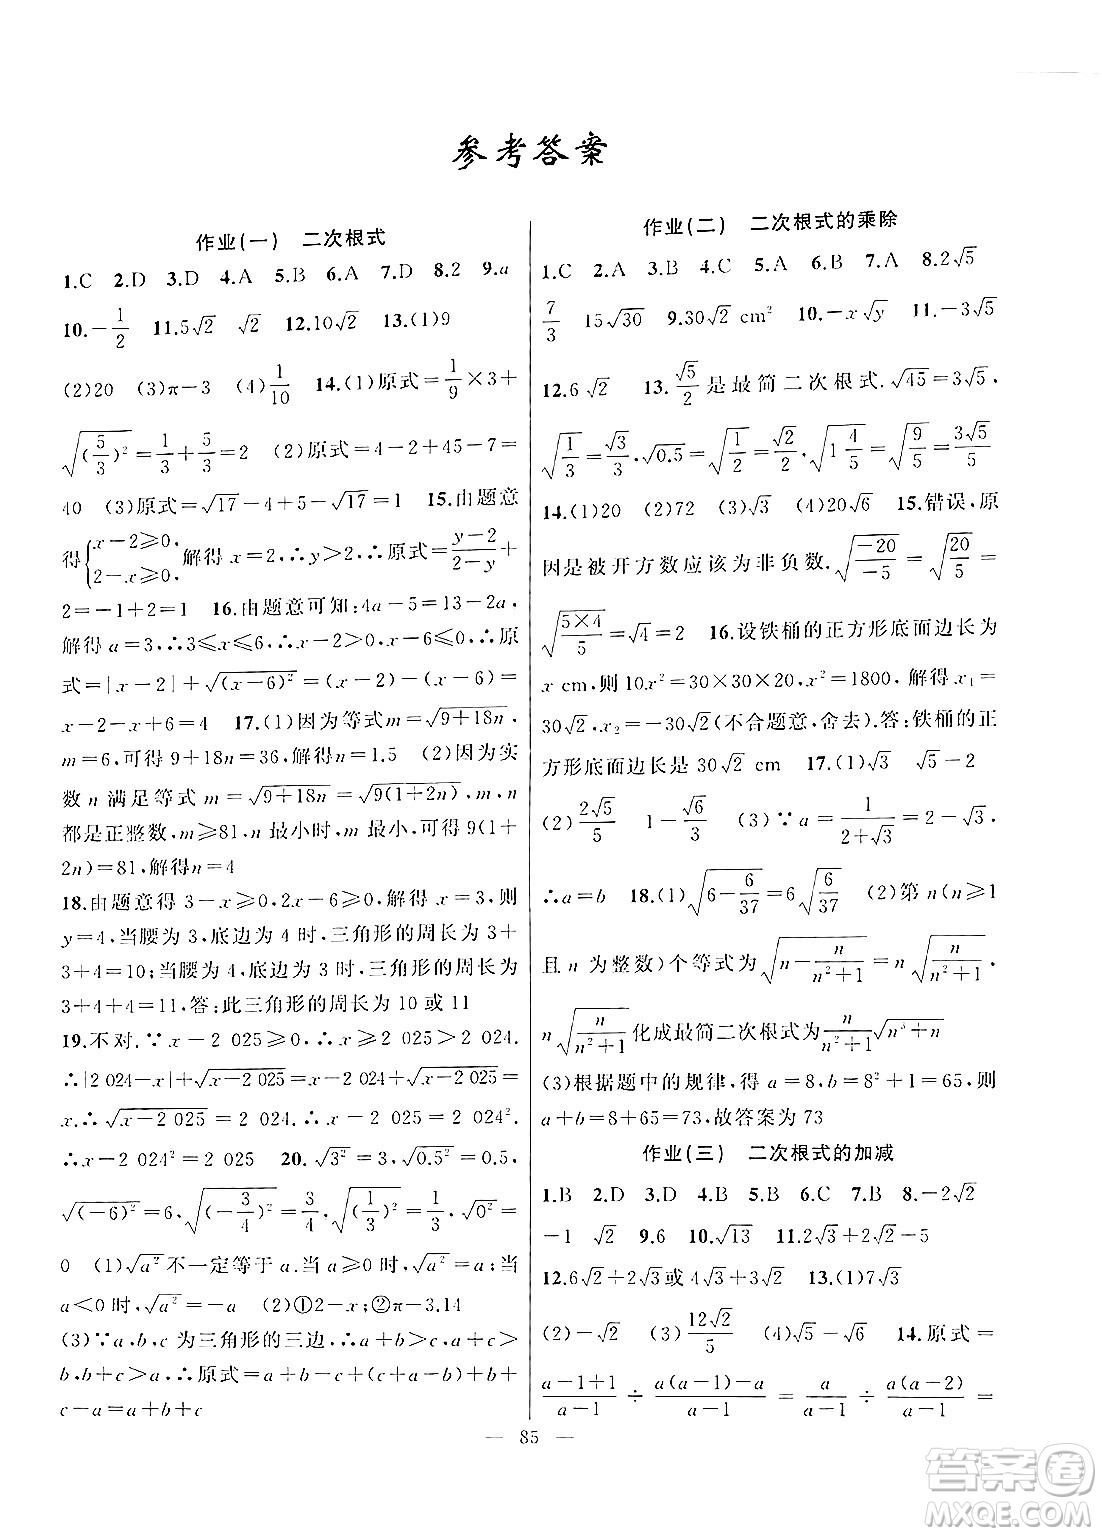 参考答案
作业(一) 二次根式
1.C 2.D 3.D 4.A 5.B 6.A 7.D 8.2 9.a
10.-1/2 11.5√2 √2 12.10√2 13.(1)9
(2)20 (3)π-3 (4)1/10 14.(1)原式=1/9×3+
√(5/3)²=1/3+5/3=2 (2)原式=4-2+45-7=
40 (3)原式=√17-4+5-√17=1 15.由题意
得{x-2≥0, 2-x≥0, 解得x=2,∴y>2,∴原式=(y-2)/(2-y)+
2=-1+2=1 16.由题意可知:4a-5=13-2a,
解得a=3,∴3≤x≤6,∴x-2>0,x-6≤0,∴原
式=|x-2|+√(x-6)²=(x-2)-(x-6)=
x-2-x+6=4 17.(1)因为等式m=√(9+18n),
m=6,可得9+18n=36,解得n=1.5 (2)因为实
数n满足等式m=√(9+18n)=√(9(1+2n)),m,n
都是正整数,m≥81,n最小时,m最小,可得9(1+
2n)=81,解得n=4
18.由题意得3-x≥0,2x-6≥0,解得x=3,则
y=4,当腰为3,底边为4时,三角形的周长为3+
3+4=10;当腰为4,底边为3时,三角形的周长为
3+4+4=11,答:此三角形的周长为10或11
19.不对.∵x-2 025≥0,∴x≥2 024.
∴|2 024-x|+√(x-2 025)=x-2 024+√(x-2 025)=
x.∴√(x-2 025)=2 024.∴x-2 025=2 024².
∴x-2 024²=2 025 20.√3²=3,√0.5²=0.5,
√(-6)²=6,√(-3/4)²=3/4,√(1/3)²=1/3,√0²=
0 (1)√a²不一定等于a.当a≥0时,√a²=a;当
a<0时,√a²=-a (2)①2-x;②π-3.14
(3)∵a,b,c为三角形的三边,∴a+b>c,a+c>
b,b+c>a,∴原式=a+b-c+(c+a-b)+b+
c-a=a+b+c
作业(二) 二次根式的乘除
1.C 2.A 3.B 4.C 5.A 6.B 7.A 8.2√5
7/3 15√30 9.30√2 cm² 10.-x√y 11.-3√5
12.6√2 13.√5/2是最简二次根式.√45=3√5,
√(1/3)=√3/3,√0.5=√(1/2)=√2/2,√(1 4/5)=√(9/5)=3√5/5
14.(1)20 (2)72 (3)√3 (4)20√6 15.错误,原
因是被开方数应该为非负数,√(-20/-5)=√(20/5)=
√(5×4/5)=√4=2 16.设铁桶的正方形底面边长为
x cm,则10x²=30×30×20,x²=1800,解得x₁=
30√2,x₂=-30√2(不合题意,舍去).答:铁桶的正
方形底面边长是30√2 cm 17.(1)√3 √5-2
(2)2√5/5 1-√6/3 (3)∵a=1/(2+√3)=2-√3
∴a=b 18.(1)√(6-6/37)=6√(6/37) (2)第n(n≥1
且n为整数)个等式为√(n-n/(n²+1))=n√(n/(n²+1)),
n√(n/(n²+1))化成最简二次根式为n/(n²+1)√(n³+n)
(3)根据题中的规律,得a=8,b=8²+1=65,则
a+b=8+65=73,故答案为73
作业(三) 二次根式的加减
1.B 2.D 3.D 4.B 5.B 6.C 7.B 8.-2√2
-1 √2 9.6 10.√13 11.2√3+2√2-5
12.6√2+2√3或4√3+3√2 13.(1)7√3
(2)-√2 (3)12√2/5 (4)√5-√6 14.原式=
(a-1+1)/(a-1)÷(a(a-1)-a)/(a-1)=a/(a-1)÷a(a-2)/(a-1)=
— 85 —
答案圈
MXQE.COM